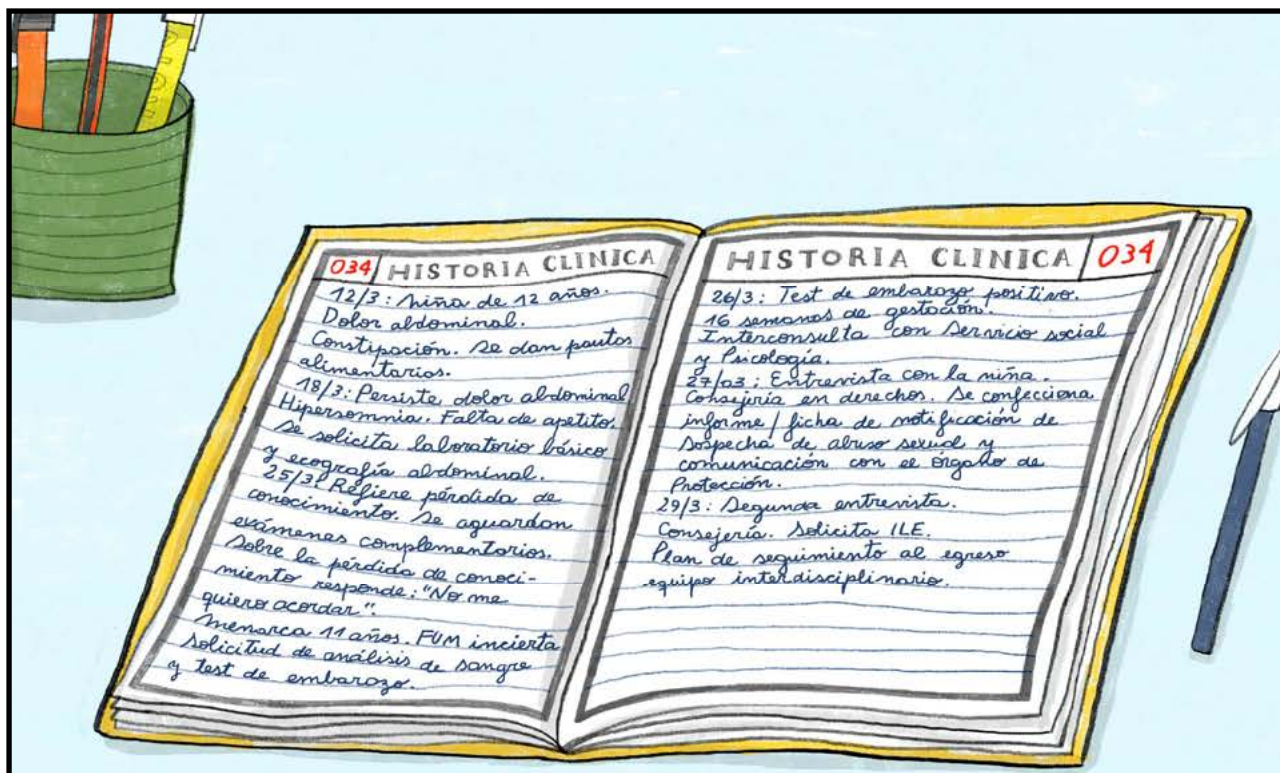 034 HISTORIA CLINICA
12/3: Niña de 12 años.
Dolor abdominal.
Constipación. Se dan pautas
alimentarias.
18/3: Persiste dolor abdominal
Hipersomnia. Falta de apetito.
Se solicita laboratorio básico
y ecografía abdominal.
25/3: Refiere pérdida de
conocimiento. Se aguardan
exámenes complementarios.
Sobre la pérdida de conoci-
miento responde: "No me
quiero acordar".
Menarca 11 años. FUM incierta
Solicitud de análisis de sangre
y test de embarazo.
HISTORIA CLINICA 034
26/3: Test de embarazo positivo.
16 semanas de gestación.
Interconsulta con Servicio social
y Psicología.
27/03: Entrevista con la niña.
Consejería en derechos. Se confecciona
informe / ficha de notificación de
sospecha de abuso sexual y
comunicación con el órgano de
Protección.
29/3: Segunda entrevista.
Consejería. Solicita ILE.
Plan de seguimiento al egreso
equipo interdisciplinario.